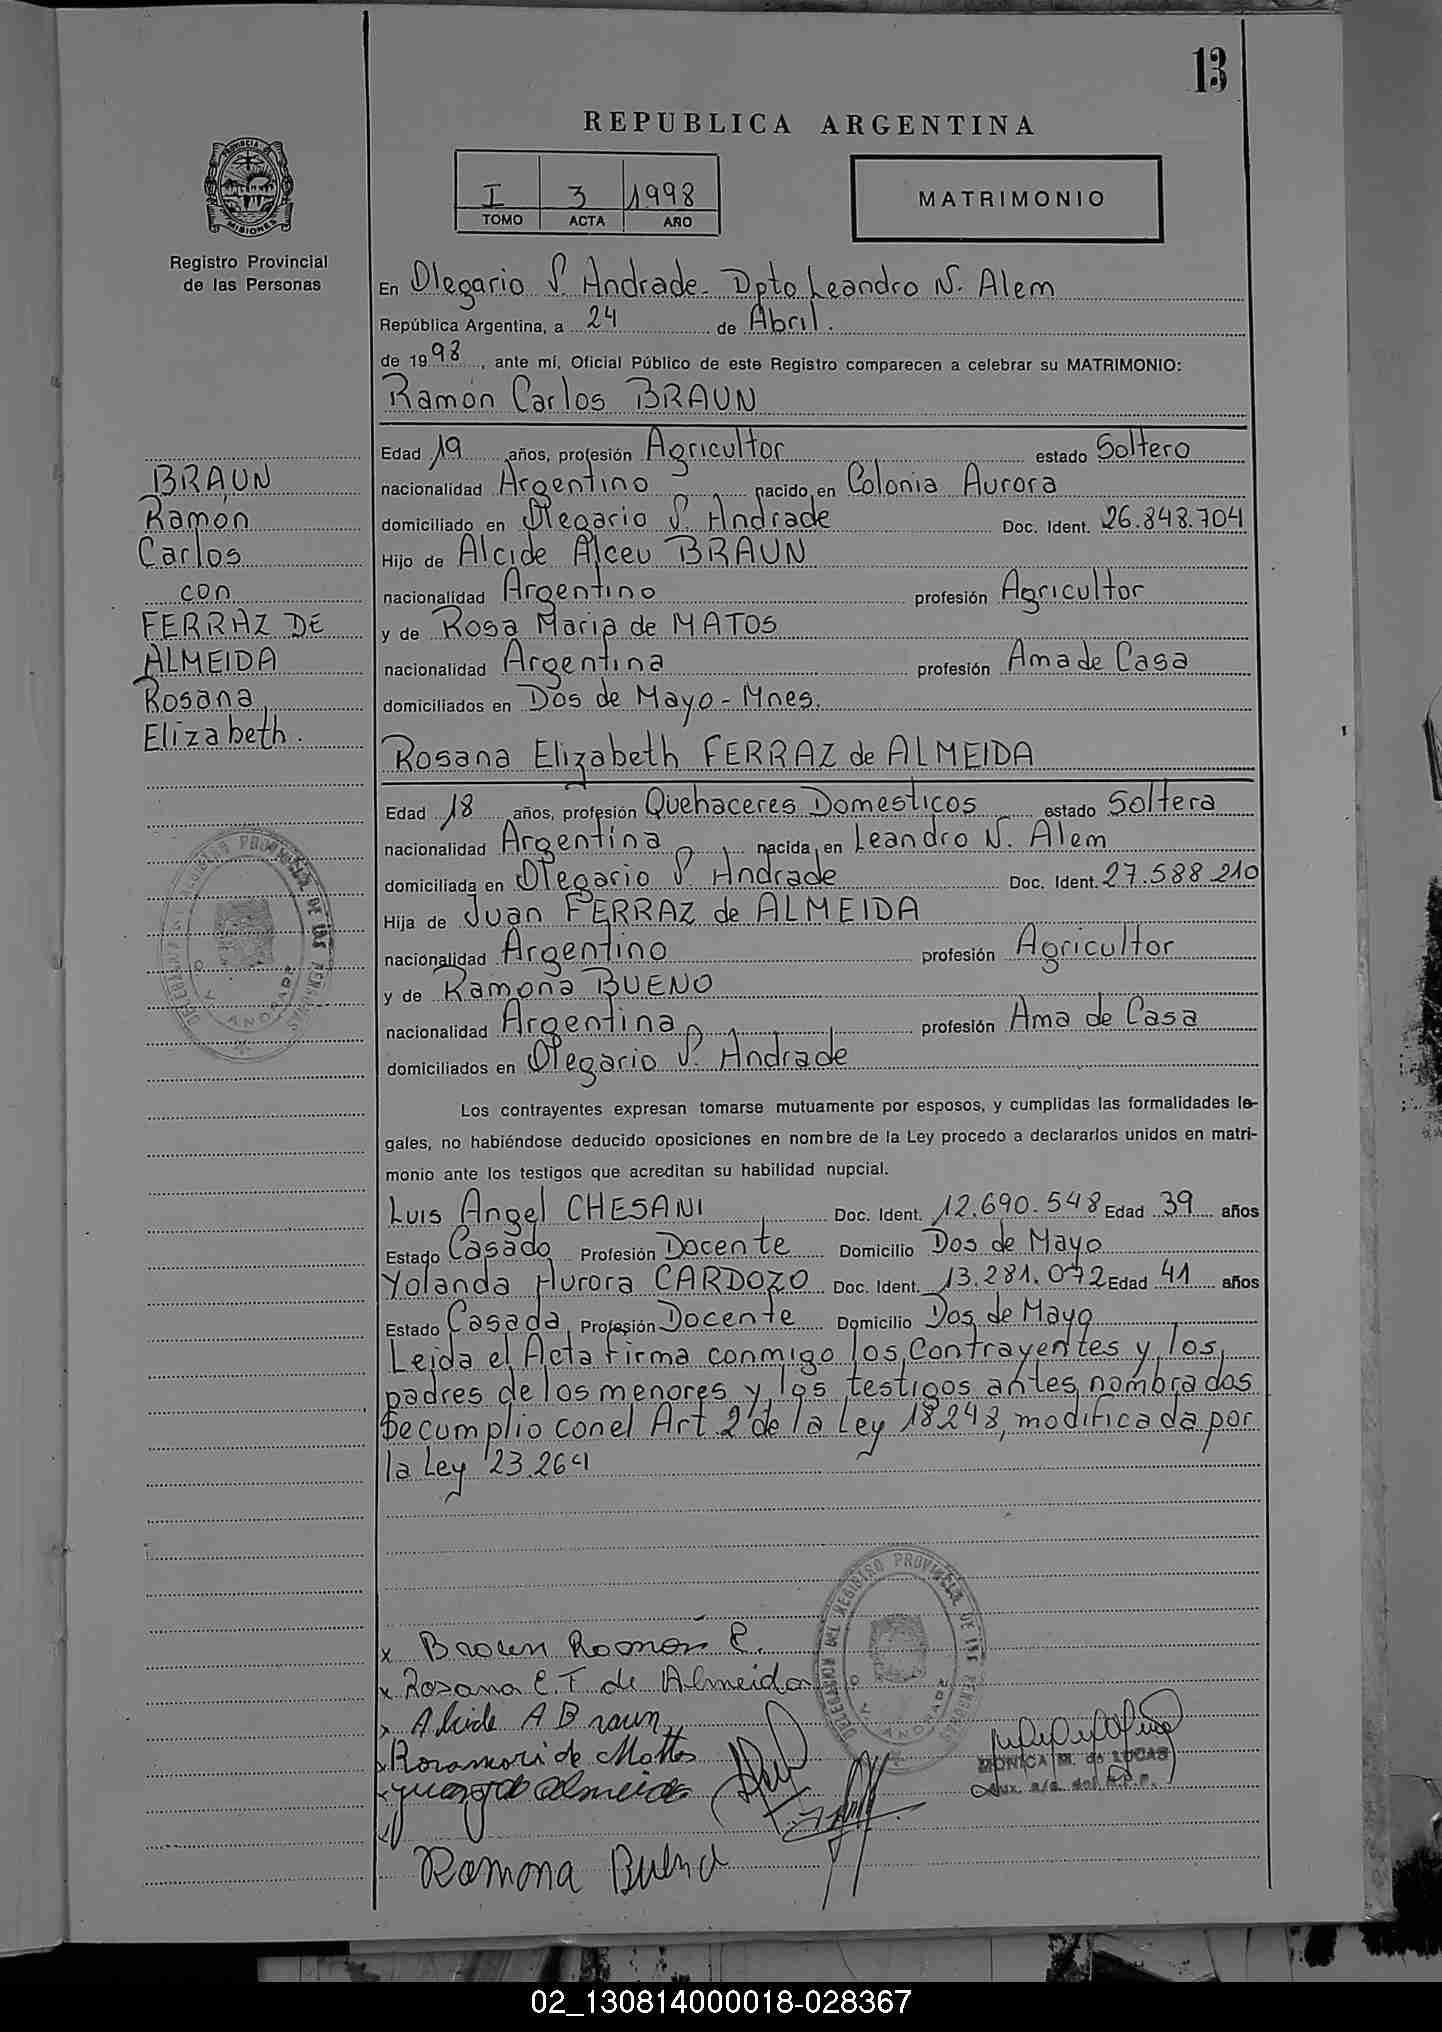 13
REPUBLICA ARGENTINA
PROVINCIA DE
MISIONES
Registro Provincial
de las Personas
I 3 1998
TOMO ACTA AÑO
MATRIMONIO
En Olegario V. Andrade. Dpto Leandro N. Alem
República Argentina, a 24 de Abril.
de 1998, ante mí, Oficial Público de este Registro comparecen a celebrar su MATRIMONIO:
Ramón Carlos BRAUN
Edad 19 años, profesión Agricultor estado Soltero
nacionalidad Argentino nacido en Colonia Aurora
domiciliado en Olegario V. Andrade Doc. Ident. 26.848.704
Hijo de Alcide Alceu BRAUN
nacionalidad Argentino profesión Agricultor
y de Rosa Maria de MATOS
nacionalidad Argentina profesión Ama de Casa
domiciliados en Dos de Mayo - Mnes.
BRAUN
Ramón
Carlos
con
FERRAZ DE
ALMEIDA
Rosana
Elizabeth.
Rosana Elizabeth FERRAZ de ALMEIDA
Edad 18 años, profesión Quehaceres Domesticos estado Soltera
nacionalidad Argentina nacida en Leandro N. Alem
domiciliada en Olegario V. Andrade Doc. Ident. 27.588.210
Hija de Juan FERRAZ de ALMEIDA
nacionalidad Argentino profesión Agricultor
y de Ramona BUENO
nacionalidad Argentina profesión Ama de Casa
domiciliados en Olegario V. Andrade
Los contrayentes expresan tomarse mutuamente por esposos, y cumplidas las formalidades le-
gales, no habiéndose deducido oposiciones en nombre de la Ley procedo a declararlos unidos en matri-
monio ante los testigos que acreditan su habilidad nupcial.
Luis Angel CHESANI Doc. Ident. 12.690.548 Edad 39 años
Estado Casado Profesión Docente Domicilio Dos de Mayo
Yolanda Aurora CARDOZO Doc. Ident. 13.281.072 Edad 41 años
Estado Casada Profesión Docente Domicilio Dos de Mayo
Leida el Acta firma conmigo los Contrayentes y los
padres de los menores y los testigos antes nombrados
Se cumplio con el Art. 2 de la Ley 18248, modificada por
la Ley 23.264
DEL REGISTRO PROVINCIAL DE LAS PERSONAS
O. V. ANDRADE
x Braun Ramón C.
x Rosana E. F. de Almeida
x Alcide A Braun
x Rosa mari de Mattos
x de almeida
Ramona Bueno
MONICA M. de LUCAS
Aux. a/c. del R.P.P.
02_130814000018-028367